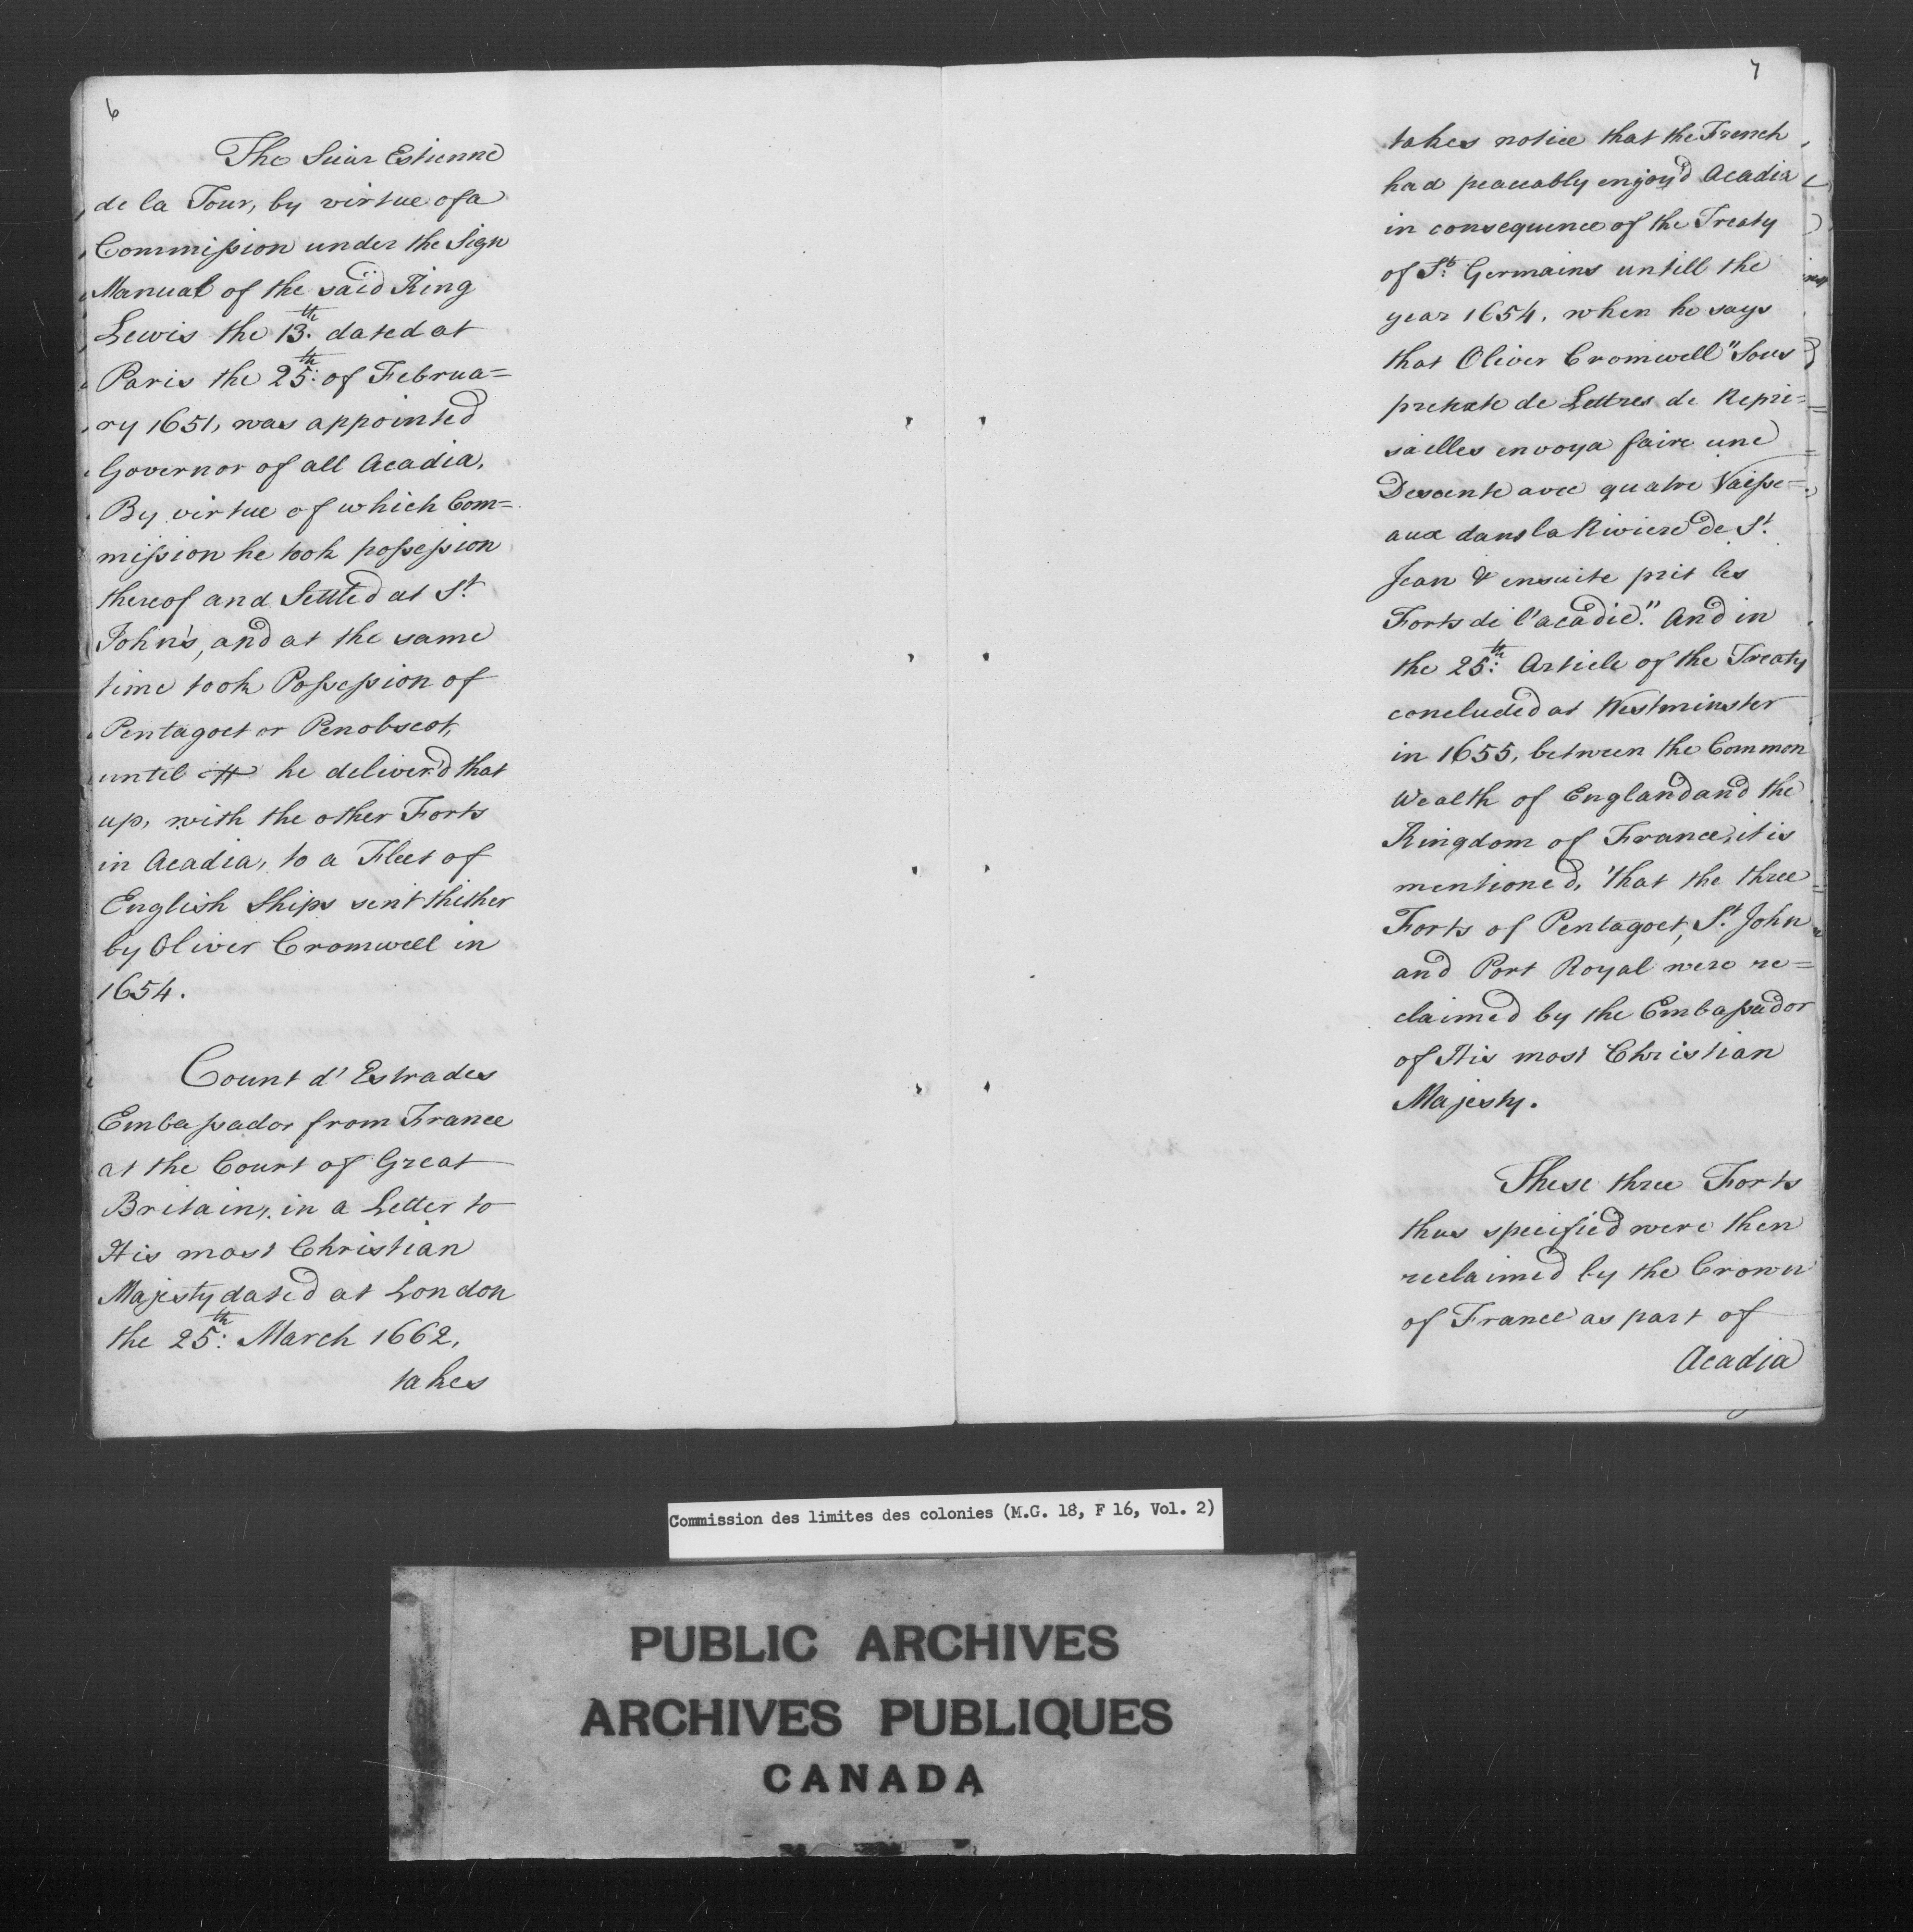 6
The Suiur Estienne
de la Tour, by virtue of a
Commission under the Sign
Manual of the said King
Lewis the 13.th dated at
Paris the 25:th of Februa=
ry 1651, was appointed
Governor of all Acadia,
By virtue of which Com=
mission he took possession
thereof and Settled at St.
John's, and at the same
time took Possession of
Pentagoet or Penobscot,
until he deliver'd that
up, with the other Forts
in Acadia, to a Fleet of
English Ships sent thither
by Oliver Cromwell in
1654.
Count d'Estrades
Embassador from France
at the Court of Great
Britain, in a Letter to
His most Christian
Majesty dated at London
the 25:th March 1662,
takes
7
takes notice that the French
had peaceably enjoy'd Acadia
in consequence of the Treaty
of St. Germains untill the
year 1654, when he says
that Oliver Cromwell "Sous
pretexte de Lettres de Repri=
sailles envoya faire une
Descente avec quatre Vaisse=
aux dans la Riviere de St.
Jean & ensuite prit les
Forts de l'acadie." And in
the 25:th Article of the Treaty
concluded at Westminster
in 1655, between the Common
Wealth of England and the
Kingdom of France, it is
mentioned, that the three
Forts of Pentagoet, St. John
and Port Royal were re=
claimed by the Embassador
of His most Christian
Majesty.
These three Forts
thus specified were then
reclaimed by the Crown
of France as part of
Acadia
Commission des limites des colonies (M.G. 18, F 16, Vol. 2)
PUBLIC ARCHIVES
ARCHIVES PUBLIQUES
CANADA